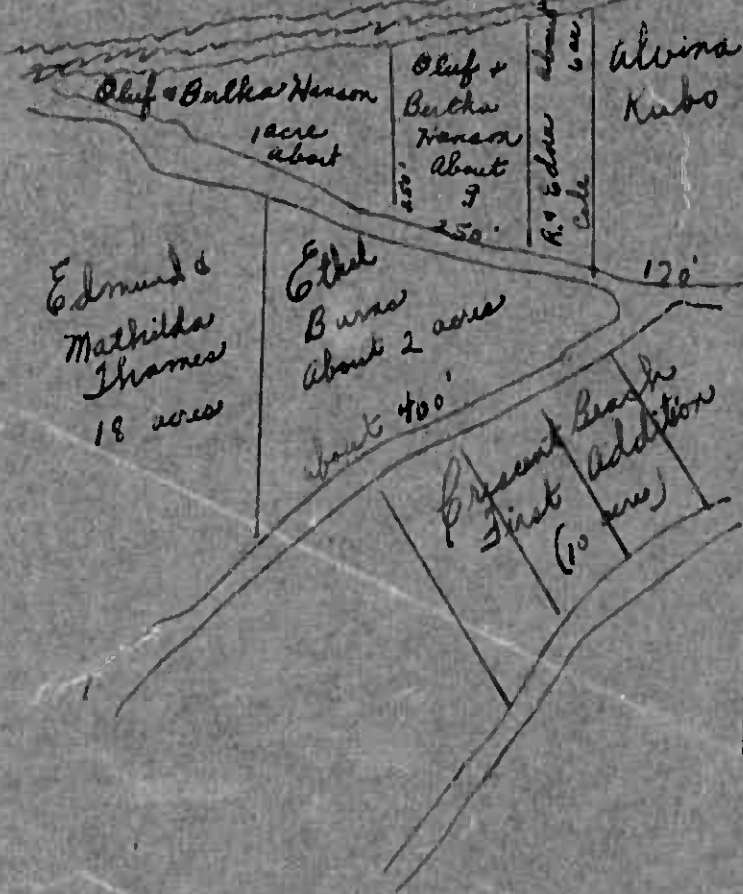 Oluf & Bertha Hanson
1 acre
about
Oluf &
Bertha
Hanson
About
9
250'
250'
R. & Edna Cole
About
6 ac.
Alvina
Kubo
120'
Edmund &
Mathilda
Thames
18 acres
Ethel
Burns
about 2 acres
about 400'
Crescent Beach
First Addition
(10 acres)